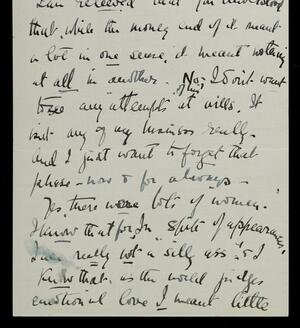 I am relieved that you understood
that, while the money end of it meant
a lot in one sense, it meant nothing
at all in another. No; I don't want
to see any of his attempts at wills. It
isn't any of my business really.
And I just want to forget that
phase – now & for always –
Yes, there were lots of women.
I know that for, In spite of appearances,
I am really not a silly ass! & I
know that as the world judges
emotional love I meant little